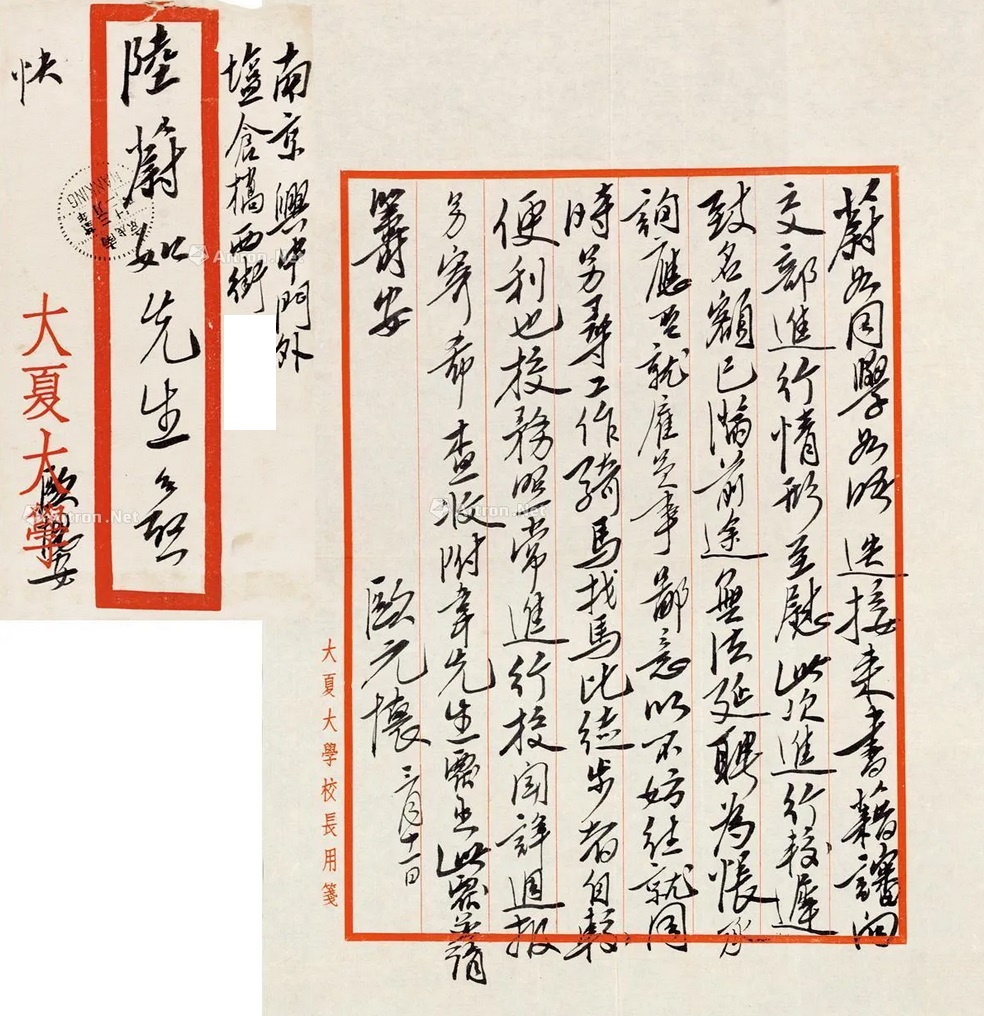 南京興中門外
塩倉橋西街
陸蔚如先生啟
快
大夏大學
NANKING
蔚如同學如晤 迭接来書藉讅向
交部進行情形至慰此次進行較遲
致名額已滿前途無法延聘為悵承
詢應否就雇員事鄙意以不妨往就同
時另尋工作騎馬找馬比徒步者自較
便利也校務照常進行校聞詳週报
另寄希查收附韋先生覆函此覆并請
籌安
歐元懷 三月十一日
大夏大學校長用箋
Artron.Net